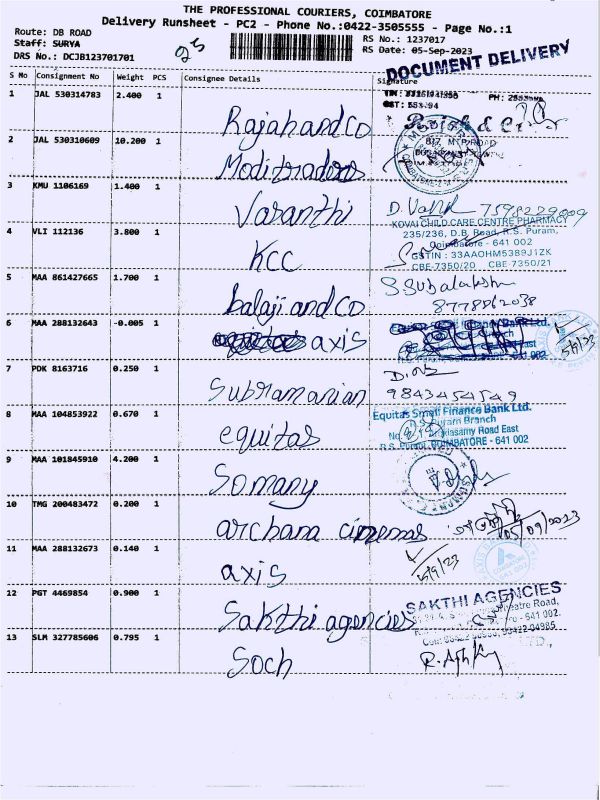 THE PROFESSIONAL COURIERS, COIMBATORE
Delivery Runsheet - PC2 - Phone No.:0422-3505555 - Page No.:1
Route: DB ROAD
Staff: SURYA
DRS No.: DCJB123701701
RS No.: 1237017
RS Date: 05-Sep-2023
DOCUMENT DELIVERY
S No Consignment No Weight PCS Consignee Details Signature
1 JAL 530314783 2.400 1 Rajah and CO
2 JAL 530310609 10.200 1 Modi tradors
3 KMU 1106169 1.400 1 Vasanthi
D. 7598229009
4 VLI 112136 3.800 1 KCC
KOVAI CHILD CARE CENTRE PHARMACY
235/236, D.B. Road, R.S. Puram,
Coimbatore - 641 002
GSTIN : 33AAOHM5389J1ZK
CBE-7350/20 CBE-7350/21
5 MAA 861427665 1.700 1 balaji and CO
S Subalakshmi
6 MAA 288132643 -0.005 1 axis
5/9/23
7 PDK 8163716 0.250 1 Subramanian
9843454549
8 MAA 104853922 0.670 1 equitas
Equitas Small Finance Bank Ltd.
Puram Branch
Road East
R.S. Puram, COIMBATORE - 641 002
9 MAA 101845910 4.200 1 Somany
10 TMG 200483472 0.200 1 archana cinemas
05/09/2023
11 MAA 288132673 0.140 1 axis
5/9/23
12 PGT 4469854 0.900 1 Sakthi agencies
SAKTHI AGENCIES
13 SLM 327785606 0.795 1 Soch